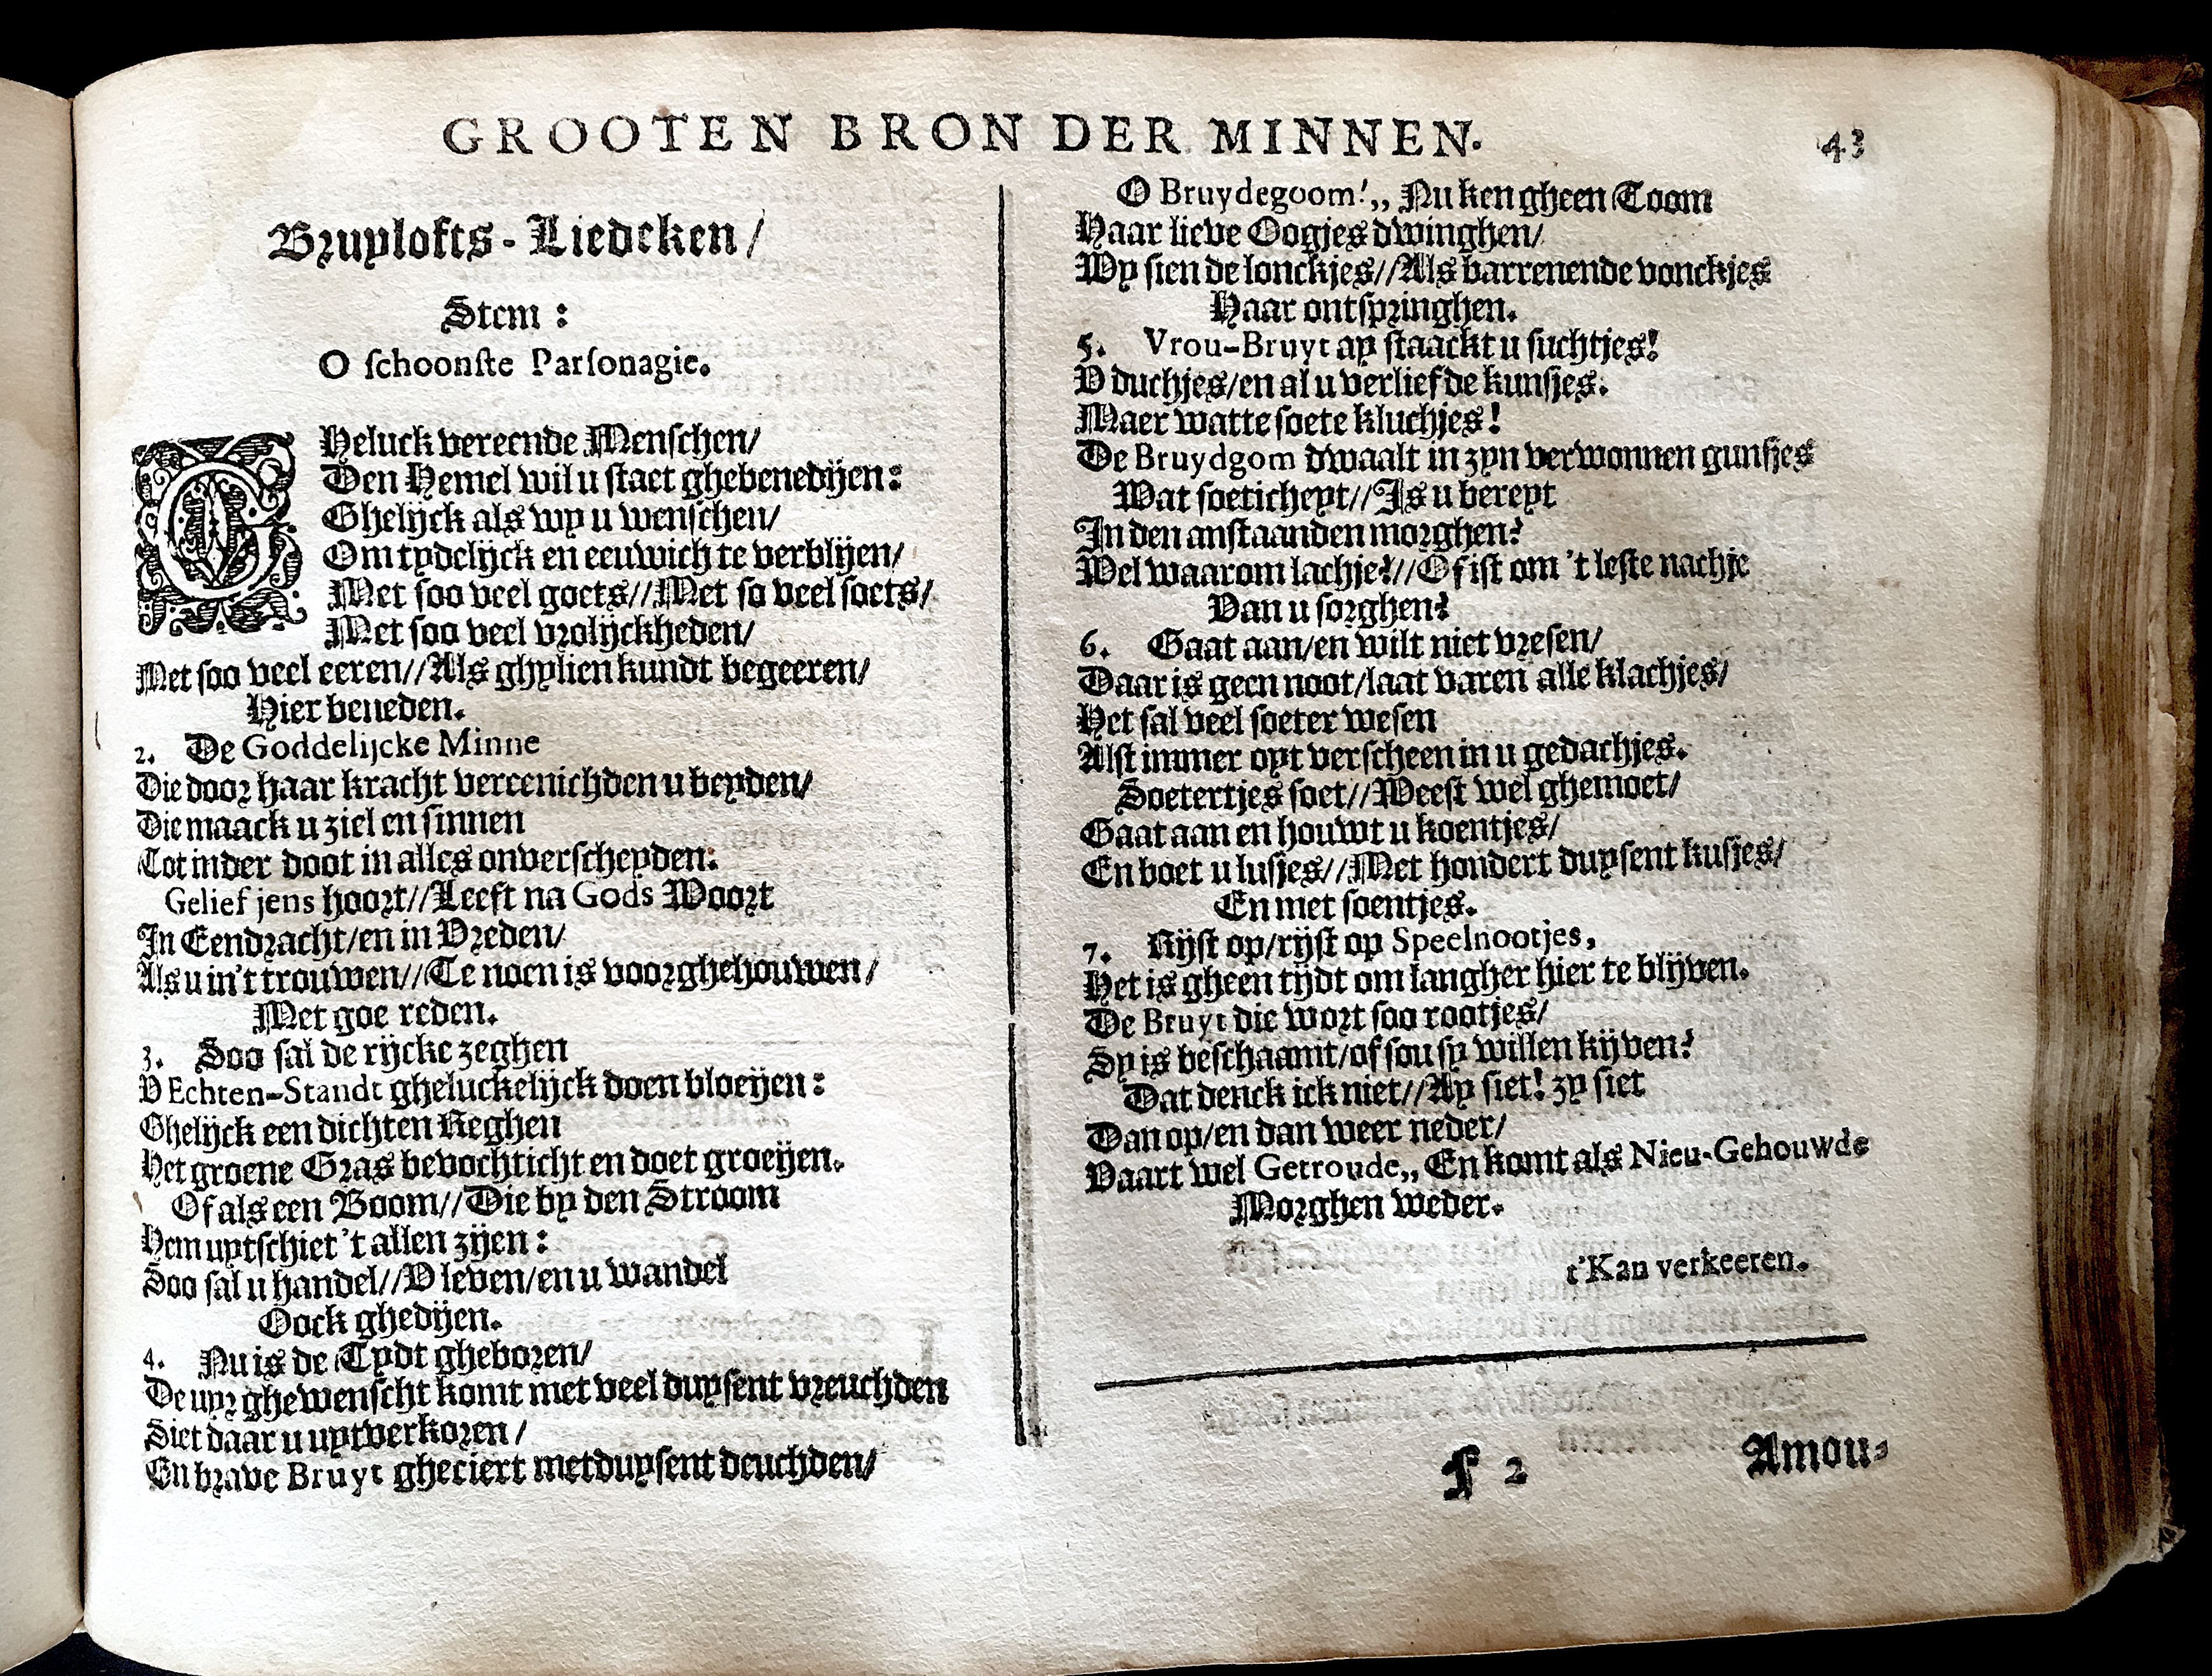 GROOTEN BRON DER MINNEN.
43
Bruylofts-Liedeken/
Stem:
O schoonste Parsonagie.
GHeluck vereende Menschen/
Den Hemel wil u staet ghebenedijen:
Ghelijck als wy u wenschen/
Om tydelijck en eeuwich te verblijen/
Met soo veel goets//Met so veel soets/
Met soo veel vrolijckheden/
Met soo veel eeren//Als ghylien kundt begeeren/
Hier beneden.
2. De Goddelijcke Minne
Die door haar kracht vereenichden u beyden/
Die maack u ziel en sinnen
Tot inder doot in alles onverscheyden:
Geliefjens hoort//Leeft na Gods Woort
In Eendracht/en in Vreden/
Als u in't trouwen//Te noen is voorghehouwen/
Met goe reden.
3. Soo sal de rijcke zeghen
V Echten-Standt gheluckelijck doen bloeijen:
Ghelijck een dichten Reghen
Het groene Gras bevochticht en doet groeijen.
Of als een Boom//Die by den Stroom
Hem uytschiet 't allen zijen:
Soo sal u handel//V leven/en u wandel
Oock ghedijen.
4. Nu is de Tydt gheboren/
De uyr ghewenscht komt met veel duysent vreuchden
Siet daar u uytverkoren/
En brave Bruyt gheciert met duysent deuchden/
O Bruydegoom!,, Nu ken gheen Toom
Haar lieve Oogjes dwinghen/
Wy sien de lonckjes//Als barrenende vonckjes
Haar ontspringhen.
5. Vrou-Bruyt ay staackt u suchtjes!
V duchjes/en al u verliefde kunsjes.
Maer watte soete kluchjes!
De Bruydgom dwaalt in zyn verwonnen gunsjes
Wat soeticheyt//Is u bereyt
In den anstaanden morghen?
Wel waarom lachje?//Of ist om 't leste nachje
Van u sorghen?
6. Gaat aan/en wilt niet vresen/
Daar is geen noot/laat varen alle klachjes/
Het sal veel soeter wesen
Alst immer oyt verscheen in u gedachjes.
Soetertjes soet//Weest wel ghemoet/
Gaat aan en houwt u koentjes/
En boet u lusjes//Met hondert duysent kusjes/
En met soentjes.
7. Rijst op/rijst op Speelnootjes,
Het is gheen tijdt om langher hier te blijven.
De Bruyt die wort soo rootjes/
Sy is beschaamt/of sou sy willen kijven?
Dat denck ick niet//Ay siet! zy siet
Dan op/en dan weer neder/
Vaart wel Getroude,, En komt als Nieu-Gehouwde
Morghen weder.
t'Kan verkeeren.
f 2
Amou-